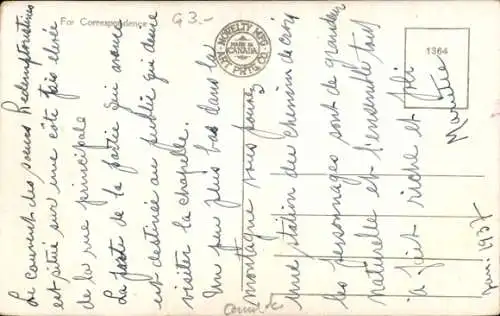 For Correspondence
G3.-
NOVELTY MFG
& ART PRTG. CO.
MADE IN
CANADA
1364
Le couvent des soeurs Redemptoristines
est située sur une côte très élevée
de la rue principale
La porte de la partie qui avance
est destinée au public qui désire
visiter la chapelle.
Un peu plus bas dans la
montagne vous pouvez
une station du chemin de croix
les personnages sont de grandeur
naturelle et l'ensemble tout
à fait riche et joli
Mariette
juin 1937